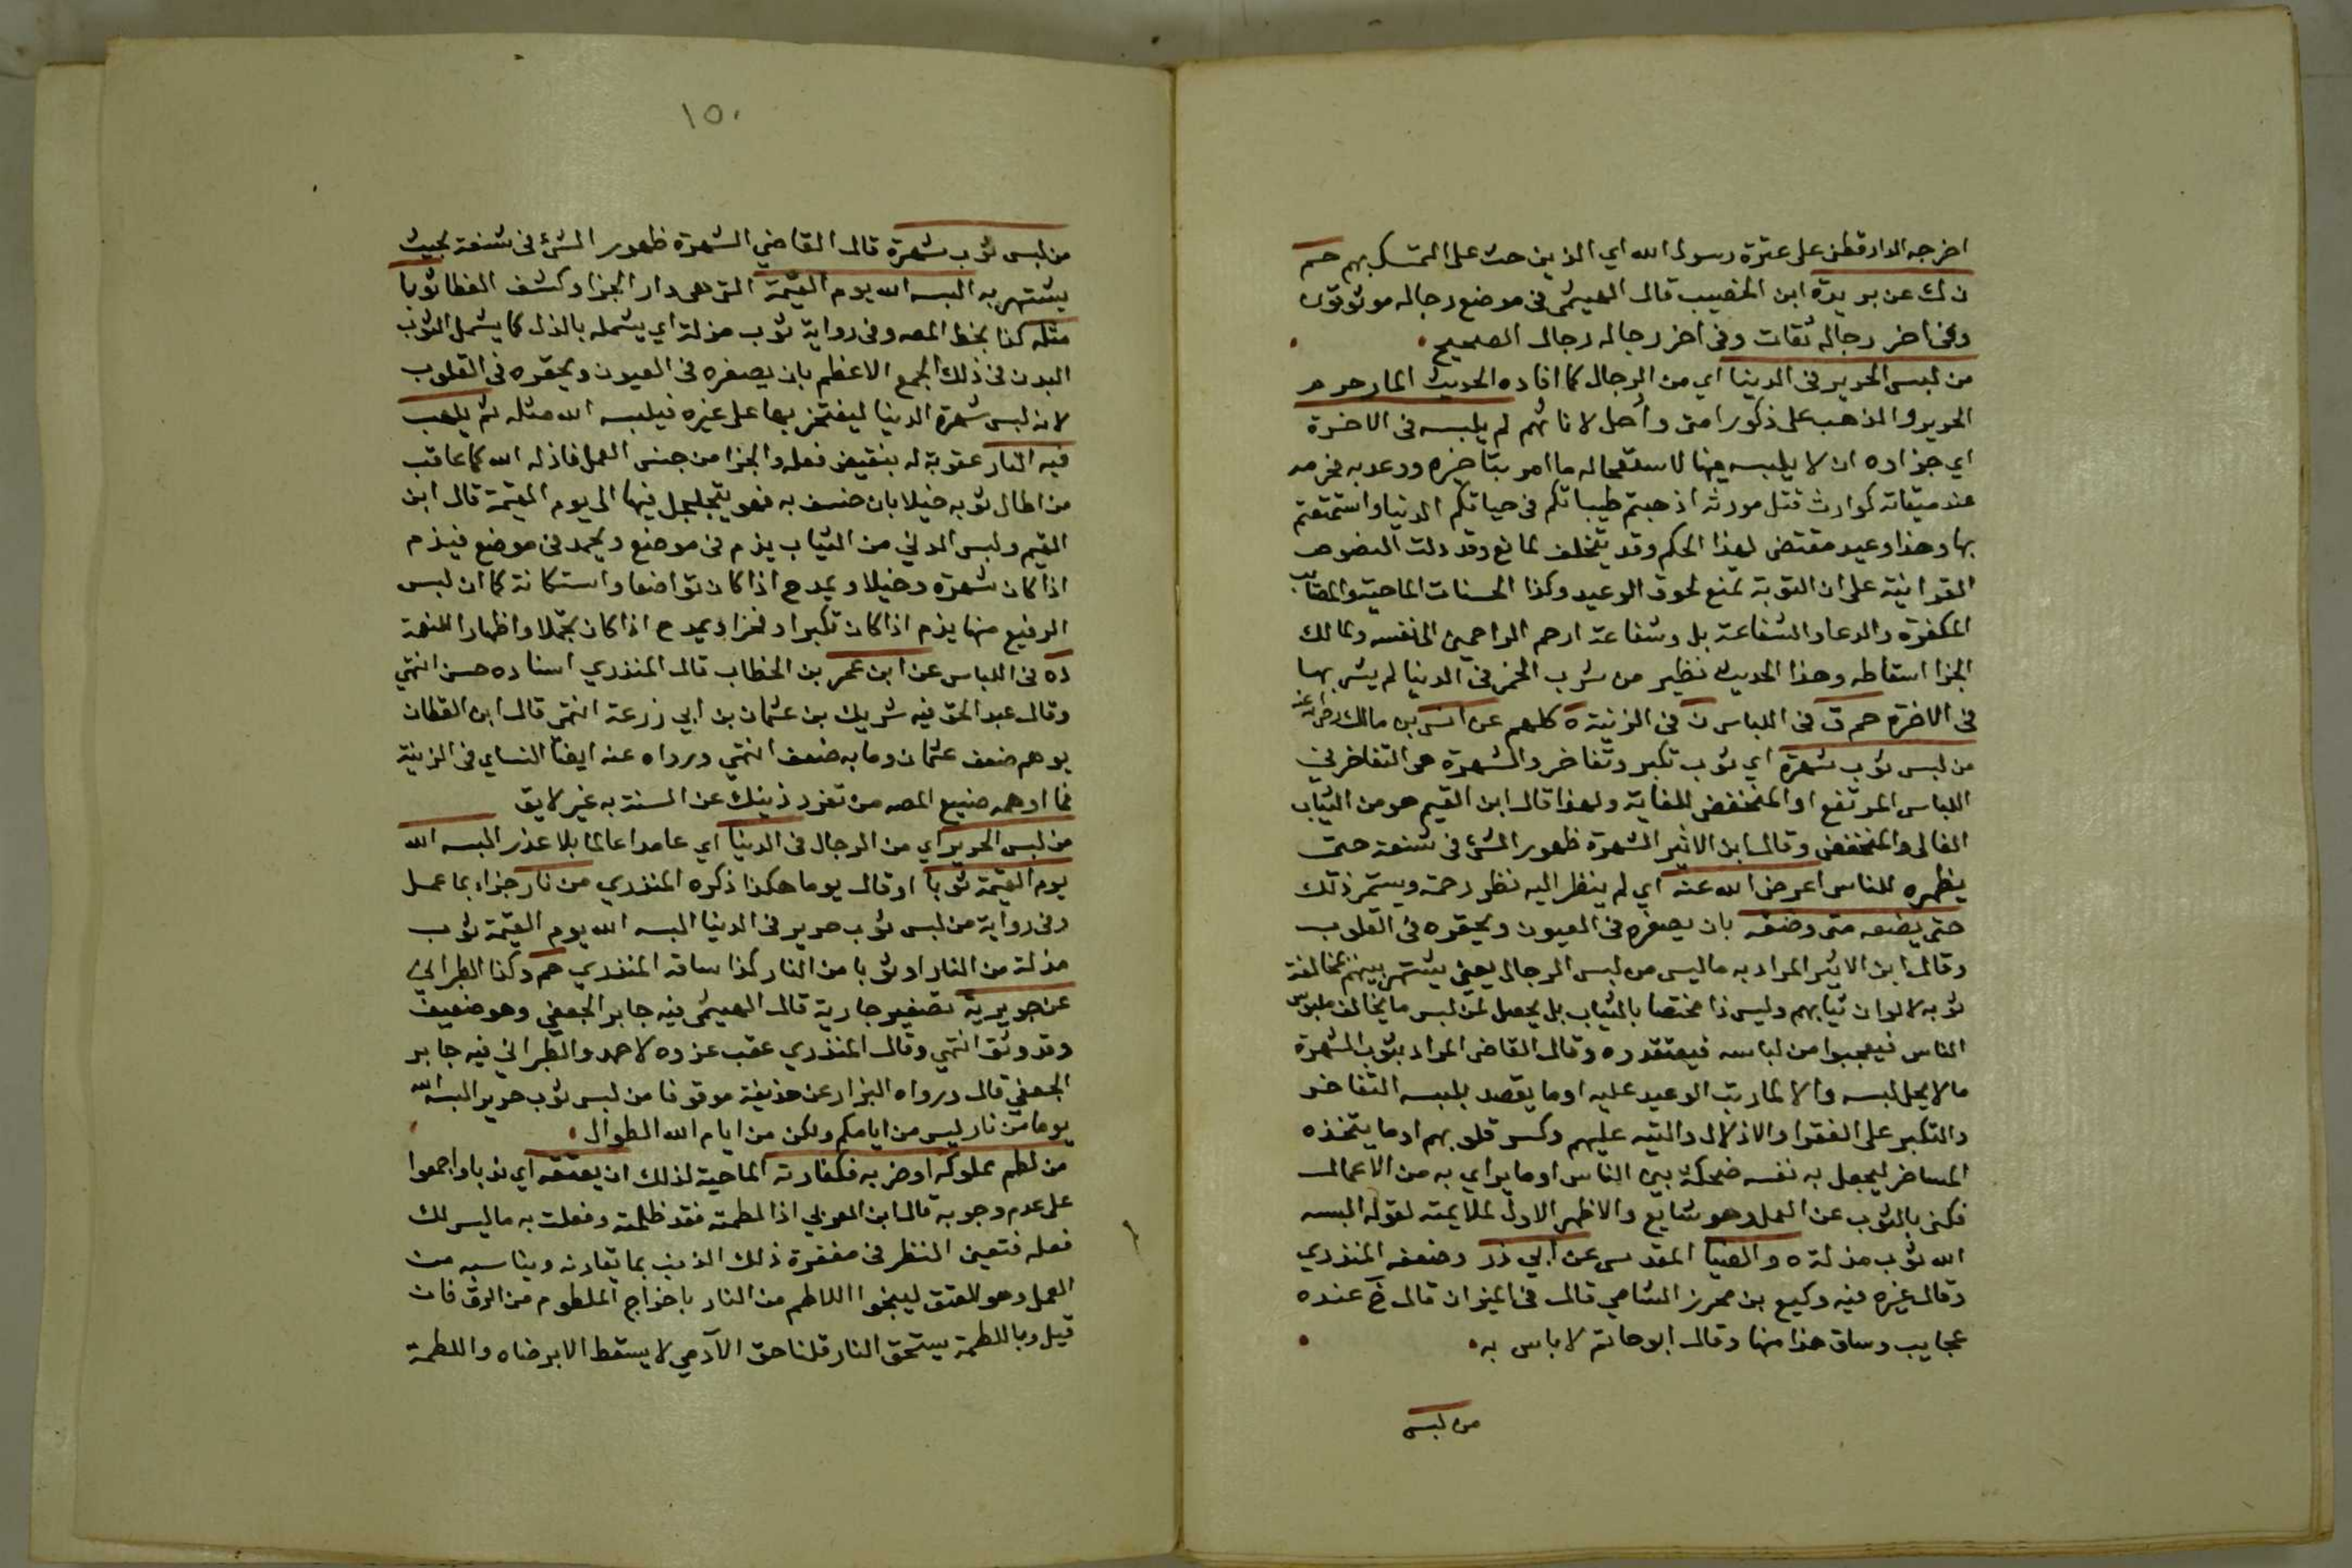 اخرجه الدارقطنى على عترة رسول الله اي الذين حث على التمسك بهم حم
ن ك عن بريدة ابن الخصيب قال الهيثمى فى موضع رجاله موثوقون
وفى اخر رجاله ثقات وفى اخر رجاله رجال الصحيح
من لبس الحرير فى الدنيا اي من الرجال كما افاده الحديث المار حرم
الحرير والذهب على ذكور امتى وأحل لاناثهم لم يلبسه فى الاخرة
اي جزاوه ان لا يلبسه فيها لاستعجاله ما امر بتاخيره ووعد به فحرمه
عند ميقاته كوارث قتل مورثه اذهبتم طيباتكم فى حياتكم الدنيا واستمتعتم
بها وهذا وعيد مقتضى لهذا الحكم وقد يتخلف لمانع وقد دلت النصوص
القرانية على ان التوبة تمنع لحوق الوعيد وكذا الحسنات الماحية والمصائب
المكفرة والدعا والشفاعة بل وشفاعة ارحم الراحمين الى نفسه ولمالك
الجزا اسقاطه وهذا الحديث نظير من شرب الخمر فى الدنيا لم يشربها
فى الاخرة حم ق فى اللباس ن فى الزينة ه كلهم عن انس بن مالك رضى الله عنه
من لبس ثوب شهرة اي ثوب تكبر وتفاخر والشهرة هى التفاخر في
اللباس المرتفع او المنخفض للغاية ولهذا قال ابن القيم هو من الثياب
الغالى والمنخفض وقال ابن الاثير الشهرة ظهور الشئ فى شنعة حتى
يظهره للناس اعرض الله عنه اي لم ينظر اليه نظر رحمة ويستمر ذلك
حتى يضعه متى وضعه بان يصغره فى العيون ويحقره فى القلوب
وقال ابن الاثير المراد به ماليس من لبس الرجال يعنى يشتهر بينهم بمخالفة
ثوبه لالوان ثيابهم وليس ذا مختصا بالثياب بل يحصل لمن لبس ما يخالف ملبوس
الناس فيعجبوا من لباسه فيعتقدوه وقال القاضى المراد بثوب الشهرة
مالا يحل لبسه والا لما رتب الوعيد عليه او ما يقصد بلبسه التفاخر
والتكبر على الفقرا والاذلال والتيه عليهم وكسر قلوبهم او ما يتخذه
المساخر ليجعل به نفسه ضحكة بين الناس او ما يراي به من الاعمال
فكنى بالثوب عن العمل وهو شايع والاظهر الاول لملايمته لقوله البسه
الله ثوب مذلة ه والضيا المقدسى عن ابي ذر وضعفه المنذري
وقال غيره فيه وكيع بن محرز الشامي قال فى الميزان قال خ عنده
عجايب وساق هذا منها وقال ابو حاتم لا باس به
من لبس
١٥٠
من لبس ثوب شهرة قال القاضي الشهرة ظهور الشئ فى شنعة بحيث
يشتهر به البسه الله يوم القيمة التى هى دار الجزا وكشف الغطا ثوبا
مثله كذا بخط المصه وفى رواية ثوب مذلة اي يشمله بالذل كما يشمل الثوب
البدن فى ذلك الجمع الاعظم بان يصغره فى العيون ويحقره فى القلوب
لانه لبس شهرة الدنيا ليفتخر بها على غيره فيلبسه الله مثله ثم يلهب
فيه النار عقوبة له بنقيض فعله والجزا من جنس العمل فاذله الله كما عاقب
من اطال ثوبه خيلا بان خسف به فهو يتجلجل فيها الى يوم القيمة قال ابن
القيم ولبس الدني من الثياب يذم فى موضع ويحمد فى موضع فيذم
اذا كان شهرة وخيلا ويمدح اذا كان تواضعا واستكانة كما ان لبس
الرفيع منها يذم اذا كان تكبرا وفخرا ويمدح اذا كان تجملا واظهارا للنعمة
ده فى اللباس عن ابن عمر بن الخطاب قال المنذري اسناده حسن انتهي
وقال عبد الحق فيه شريك بن عثمان بن ابي زرعة انتهى قال ابن القطان
يوهم ضعف عثمان وما به ضعف انتهي ورواه عنه ايضا النساي فى الزينة
فما اوهمه صنيع المصه من تفرد ذينك عن الستة به غير لايق
من لبس الحرير اي من الرجال فى الدنيا اي عامدا عالما بلا عذر البسه الله
يوم القيمة ثوبا او قال يوما هكذا ذكره المنذري من نار جزاء بما عمل
وفى رواية من لبس ثوب حرير فى الدنيا البسه الله يوم القيمة ثوب
مذلة من النار او ثوبا من النار كذا ساقه المنذري حم وكذا الطبراني
عن جويرية تصغير جارية قال الهيثمى فيه جابر الجعفي وهو ضعيف
وقد وثق انتهي وقال المنذري عقب عزوه لاحمد والطبراني فيه جابر
الجعفي قال ورواه البزار عن حذيفة موقوفا من لبس ثوب حرير البسه الله
يوما من نار ليس من ايامكم ولكن من ايام الله الطوال
من لطم مملوكه او ضربه فكفارته الماحية لذلك ان يعتقه اي ندبا واجمعوا
على عدم وجوبه قال ابن العربي اذا لطمته فقد ظلمته وفعلت به ماليس لك
فعله فتعين النظر فى مغفرة ذلك الذنب بما تقارنه ويناسبه من
العمل وهو العتق لينجوا اللاطم من النار باخراج الملطوم من الرق فان
قيل وباللطمة يستحق النار قلنا حق الآدمي لا يسقط الا برضاه واللطمة